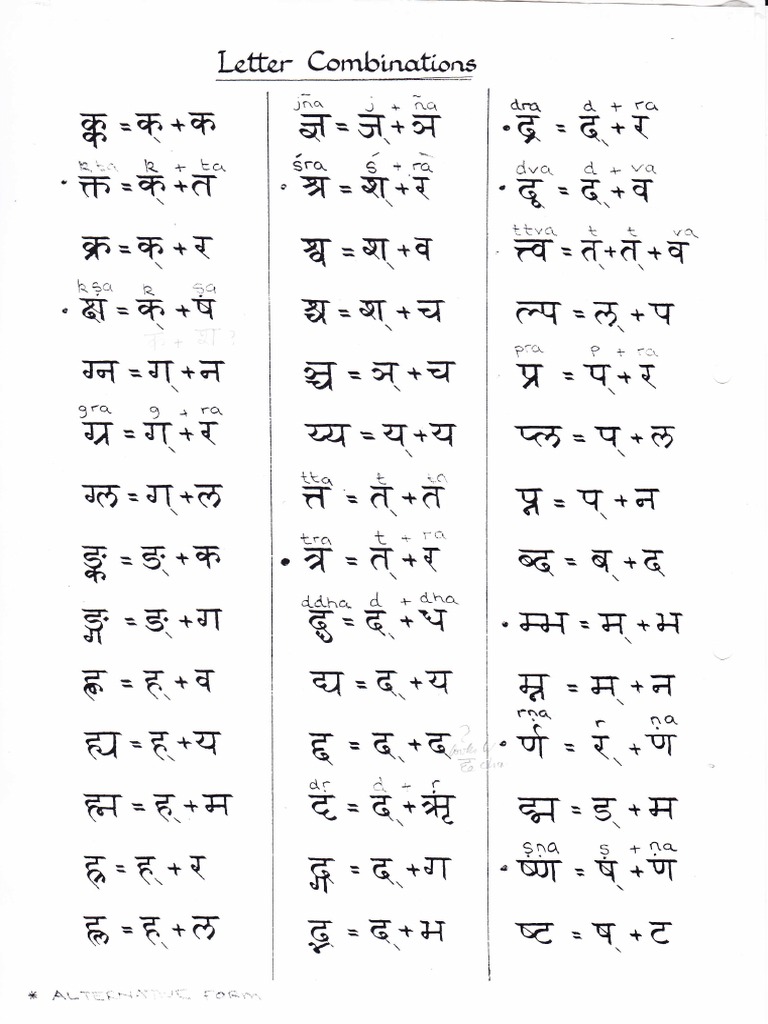 Letter Combinations
क्क = क् + क
kta k + ta
• क्त = क् + त
क्र = क् + र
kṣa k ṣa
• क्ष = क् + ष
ग्न = ग् + न
gra g + ra
ग्र = ग् + र
ग्ल = ग् + ल
ङ्क = ङ् + क
ङ्ग = ङ् + ग
ह्व = ह् + व
ह्य = ह् + य
ह्म = ह् + म
ह्र = ह् + र
ह्ल = ह् + ल
jña j + ña
ज्ञ = ज् + ञ
śra ś + ra
• श्र = श् + र
श्व = श् + व
श्च = श् + च
ञ्च = ञ् + च
य्य = य् + य
tta t ta
त्त = त् + त
tra t + ra
• त्र = त् + र
ddha d + dha
द्ध = द् + ध
द्य = द् + य
द्द = द् + द
dr d + r
दृ = द् + ऋ
द्ग = द् + ग
द्भ = द् + भ
dra d + ra
• द्र = द् + र
dva d + va
• द्व = द् + व
ttva t t va
• त्त्व = त् + त् + व
ल्प = ल् + प
pra p + ra
प्र = प् + र
प्ल = प् + ल
प्न = प् + न
ब्द = ब् + द
• म्भ = म् + भ
म्न = म् + न
rṇa r ṇa
• र्ण = र् + ण
ङ्म = ङ् + म
ṣṇa ṣ + ṇa
• ष्ण = ष् + ण
ष्ट = ष् + ट
* ALTERNATIVE FORM